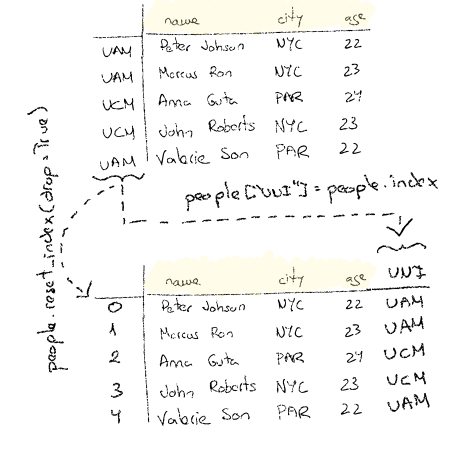 name city age
UAM Peter Johson NYC 22
UAM Marcus Ron NYC 23
UCM Anna Guta PAR 24
UCM John Roberts NYC 23
UAM Valerie Son PAR 22
people["UNI"] = people.index
people.reset_index(drop=True)
name city age UNI
0 Peter Johson NYC 22 UAM
1 Marcus Ron NYC 23 UAM
2 Anna Guta PAR 24 UCM
3 John Roberts NYC 23 UCM
4 Valerie Son PAR 22 UAM